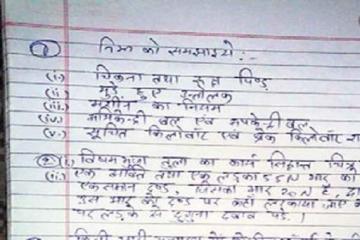 ① निम्न को समझाइये :-
(i) चिकना तथा रूक्ष पिण्ड
(ii) मुड़े हुए उत्तोलक
(iii) मशीन का नियम
(iv) अभिकेन्द्री बल एवं अपकेन्द्री बल
(v) सूचित किलोवाट एवं ब्रेक किलोवाट
② (i) विषम भुजा तुला का कार्य सिद्धान्त चित्र
(ii) एक व्यक्ति तथा एक लड़का 55N भार को
एकसमान दण्ड, जिसका भार 20N है,
उस भार को दण्ड पर कहाँ लटकाया जाए
पर लड़के से दुगुना दबाव पड़े।